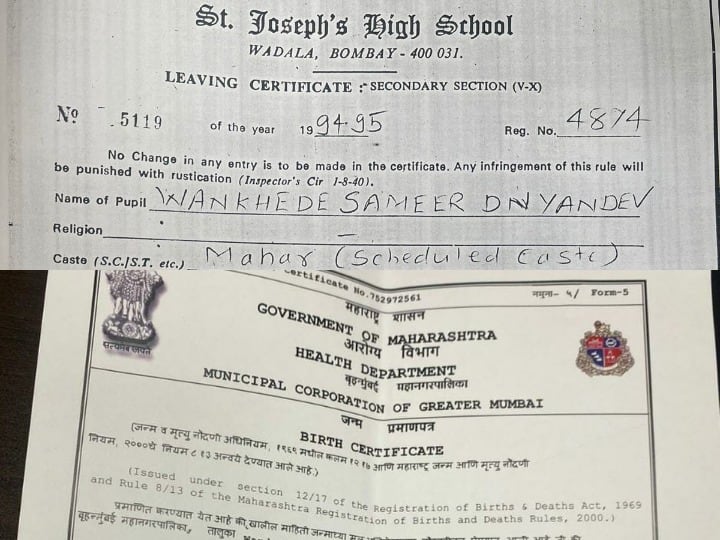 St. Joseph's High School
WADALA, BOMBAY - 400 031.
LEAVING CERTIFICATE :- SECONDARY SECTION (V-X)
Nº 5119 of the year 1994-95 Reg. No. 4874
No Change in any entry is to be made in the certificate. Any infringement of this rule will
be punished with rustication (Inspector's Cir 1-8-40).
Name of Pupil WANKHEDE SAMEER DNYANDEV
Religion -
Caste (S.C./S.T. etc.) Mahar (Scheduled Caste)
Certificate No.752972561 नमुना- ५/ Form-5
महाराष्ट्र शासन
GOVERNMENT OF MAHARASHTRA
आरोग्य विभाग
HEALTH DEPARTMENT
बृहन्मुंबई महानगरपालिका
MUNICIPAL CORPORATION OF GREATER MUMBAI
सत्यमेव जयते
जन्म प्रमाणपत्र
BIRTH CERTIFICATE
(जन्म व मृत्यु नोंदणी अधिनियम, १९६९ मधील कलम १२/१७ आणि महाराष्ट्र जन्म आणि मृत्यु नोंदणी
नियम, २०००चे नियम ८/१३ अन्वये देण्यात आले आहे.)
(Issued under section 12/17 of the Registration of Births & Deaths Act, 1969
and Rule 8/13 of the Maharashtra Registration of Births and Deaths Rules, 2000.)
प्रमाणित करण्यात येत आहे की, खालील माहिती जन्माच्या मूळ
बृहन्मुंबई महानगरपालिका, तालुका